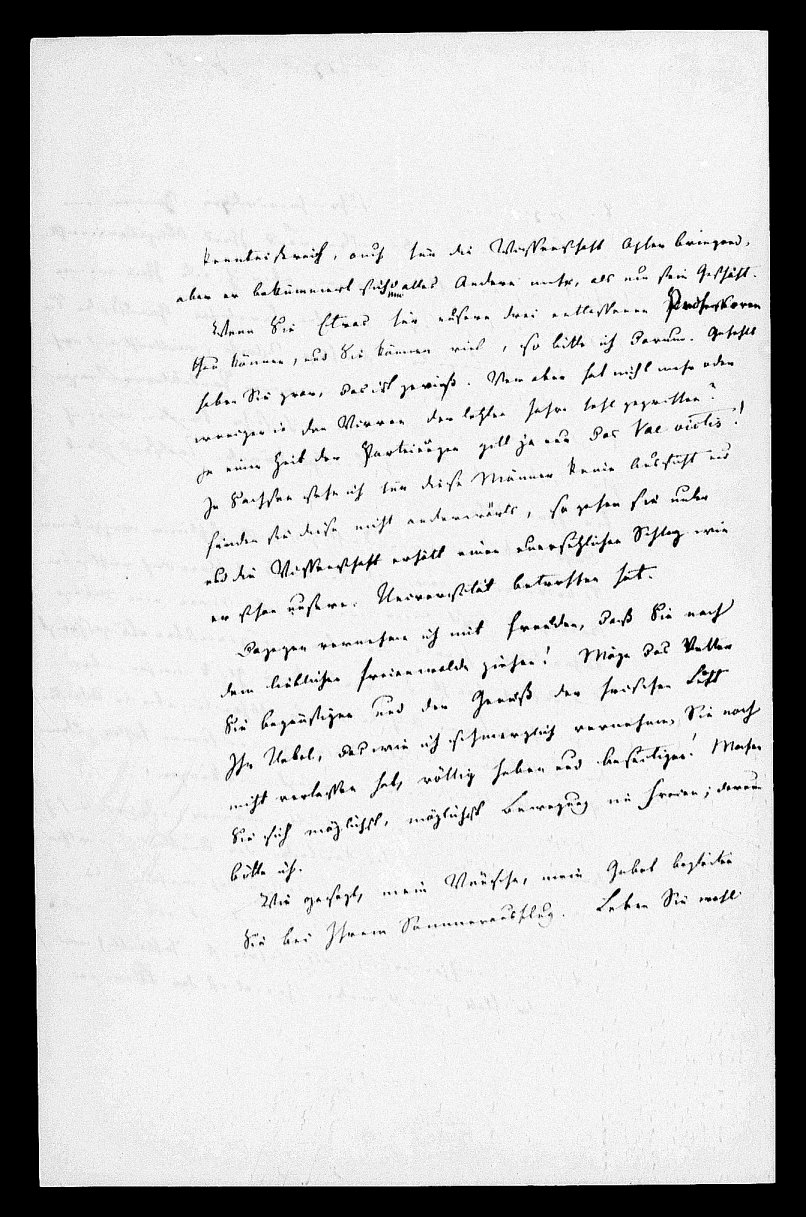 kenntnißreich, auch für die Wissenschaft Opfer bringend,
aber er bekümmert sich um alles Andere mehr, als um sein Geschäft.
Wenn Sie Etwas für unsere drei entlassenen Professoren
thun können, und Sie können viel, so bitte ich darum. Gefehlt
haben Sie zwar, das ist gewiß. Wer aber hat nicht mehr oder
weniger in den Wirren der letzten Jahre fehl gegriffen?
In einer Zeit der Parteiungen gilt ja nur das Vae victis!
In Sachsen sehe ich für diese Männer keine Aussicht und
finden sie diese nicht anderwärts, so gehen sie unter
und die Wissenschaft erhält einen unersetzlichen Schlag wie
er schon unsere Universität betroffen hat.
Dagegen vernehme ich mit Freuden, daß Sie nach
dem lieblichen Freienwalde ziehen! Möge das Wetter
Sie begünstigen und der Genuß der frischen Luft
Ihr Uebel, das wie ich schmerzlich vernehme, Sie noch
nicht verlassen hat, völlig heben und beseitigen! Machen
Sie sich möglichst, möglichst Bewegung im Freien; darum
bitte ich.
Wie gesagt, meine Wünsche, mein Gebet begleiten
Sie bei Ihrem Sommerausflug. Leben Sie wohl